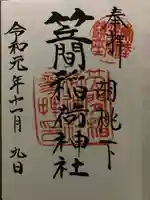 奉拝 胡桃下
笠間稲荷神社
令和元年十一月 九日